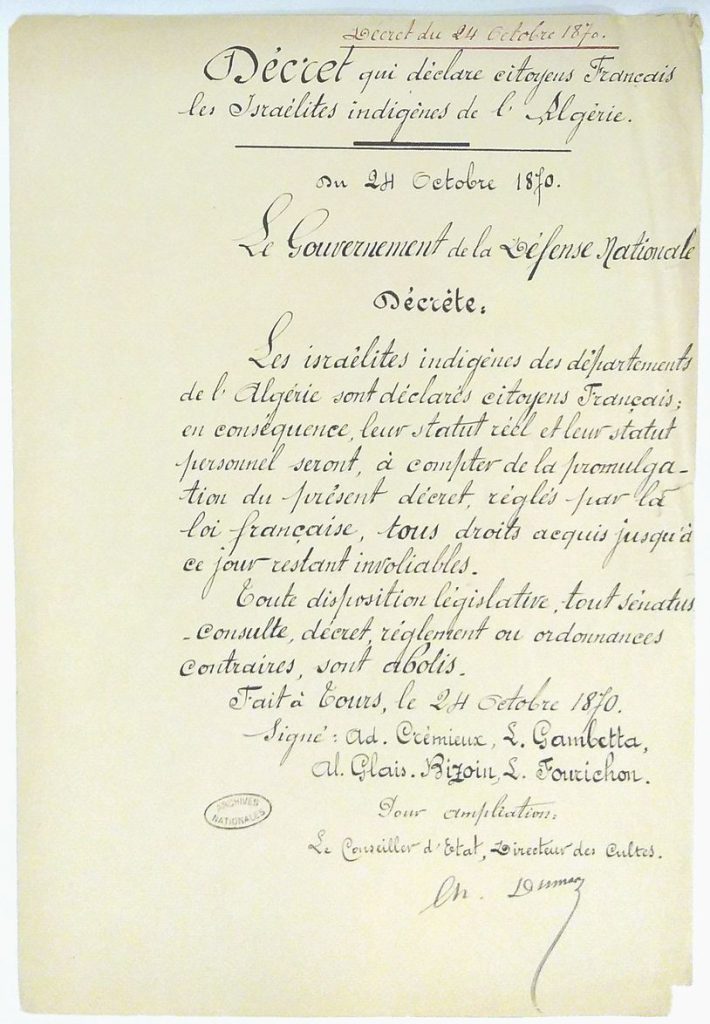 Décret du 24 Octobre 1870.
Décret qui déclare citoyens Français
les Israélites indigènes de l'Algérie.
Du 24 Octobre 1870.
Le Gouvernement de la Défense Nationale
Décrète:
Les israélites indigènes des départements
de l'Algérie sont déclarés citoyens Français;
en conséquence, leur statut réel et leur statut
personnel seront, à compter de la promulga-
tion du présent décret, réglés par la
loi française, tous droits acquis jusqu'à
ce jour restant involiables.
Toute disposition législative, tout sénatus
-consulte, décret, réglement ou ordonnances
contraires, sont abolis.
Fait à Tours, le 24 Octobre 1870.
Signé: Ad. Crémieux, L. Gambetta,
Al. Glais-Bizoin, L. Fourichon.
ARCHIVES
NATIONALES
Pour ampliation:
Le Conseiller d'Etat, Directeur des Cultes.
Ch.